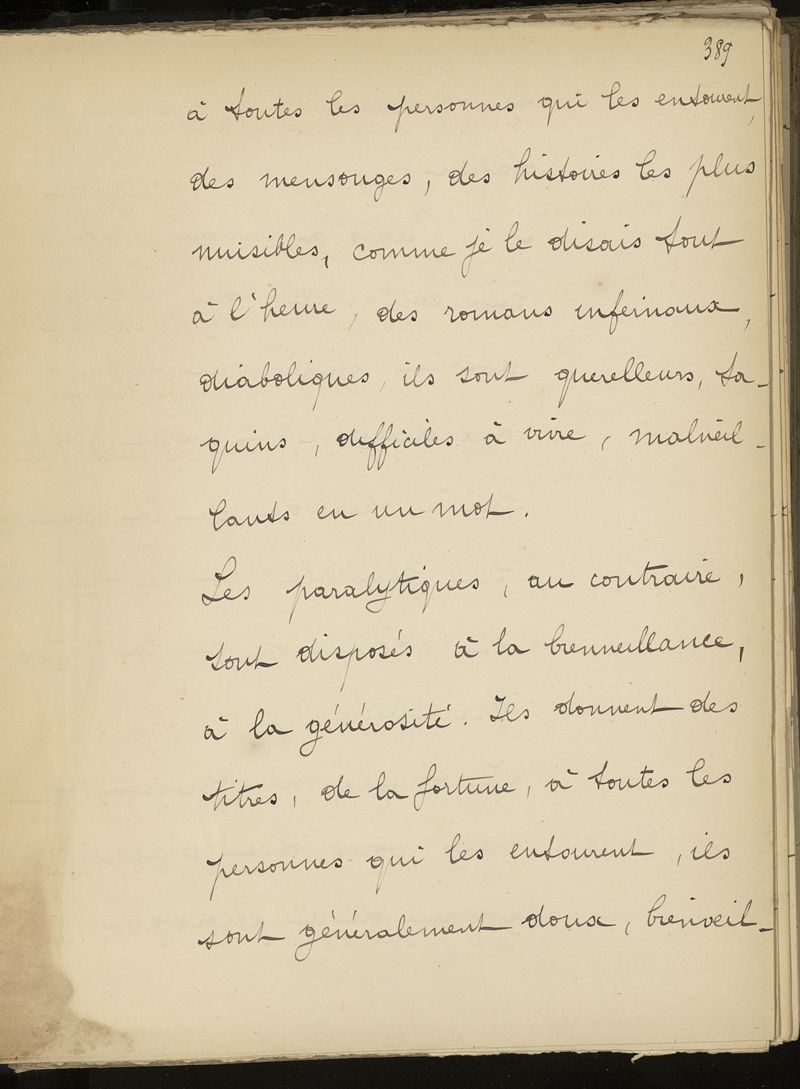 389
à toutes les personnes qui les entourent,
des mensonges, des histoires les plus
nuisibles, comme je le disais tout
à l'heure, des romans infernaux,
diaboliques, ils sont querelleurs, ta-
quins, difficiles à vivre, malveil-
lants en un mot.
Les paralytiques, au contraire,
sont disposés à la bienveillance,
à la générosité. Ils donnent des
titres, de la fortune, à toutes les
personnes qui les entourent, ils
sont généralement doux, bienveil-